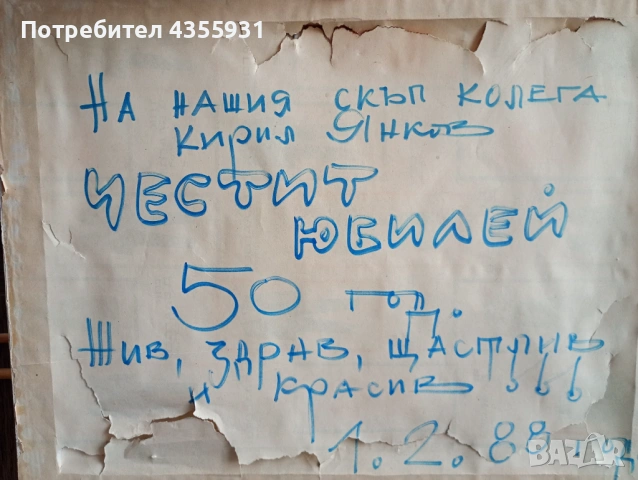 Потребител 4355931
На нашия скъп колега
Кирил Янков
Честит
Юбилей
50 год.
Жив, здрав, щастлив
и красив!!!
1.2.88
BAZAR